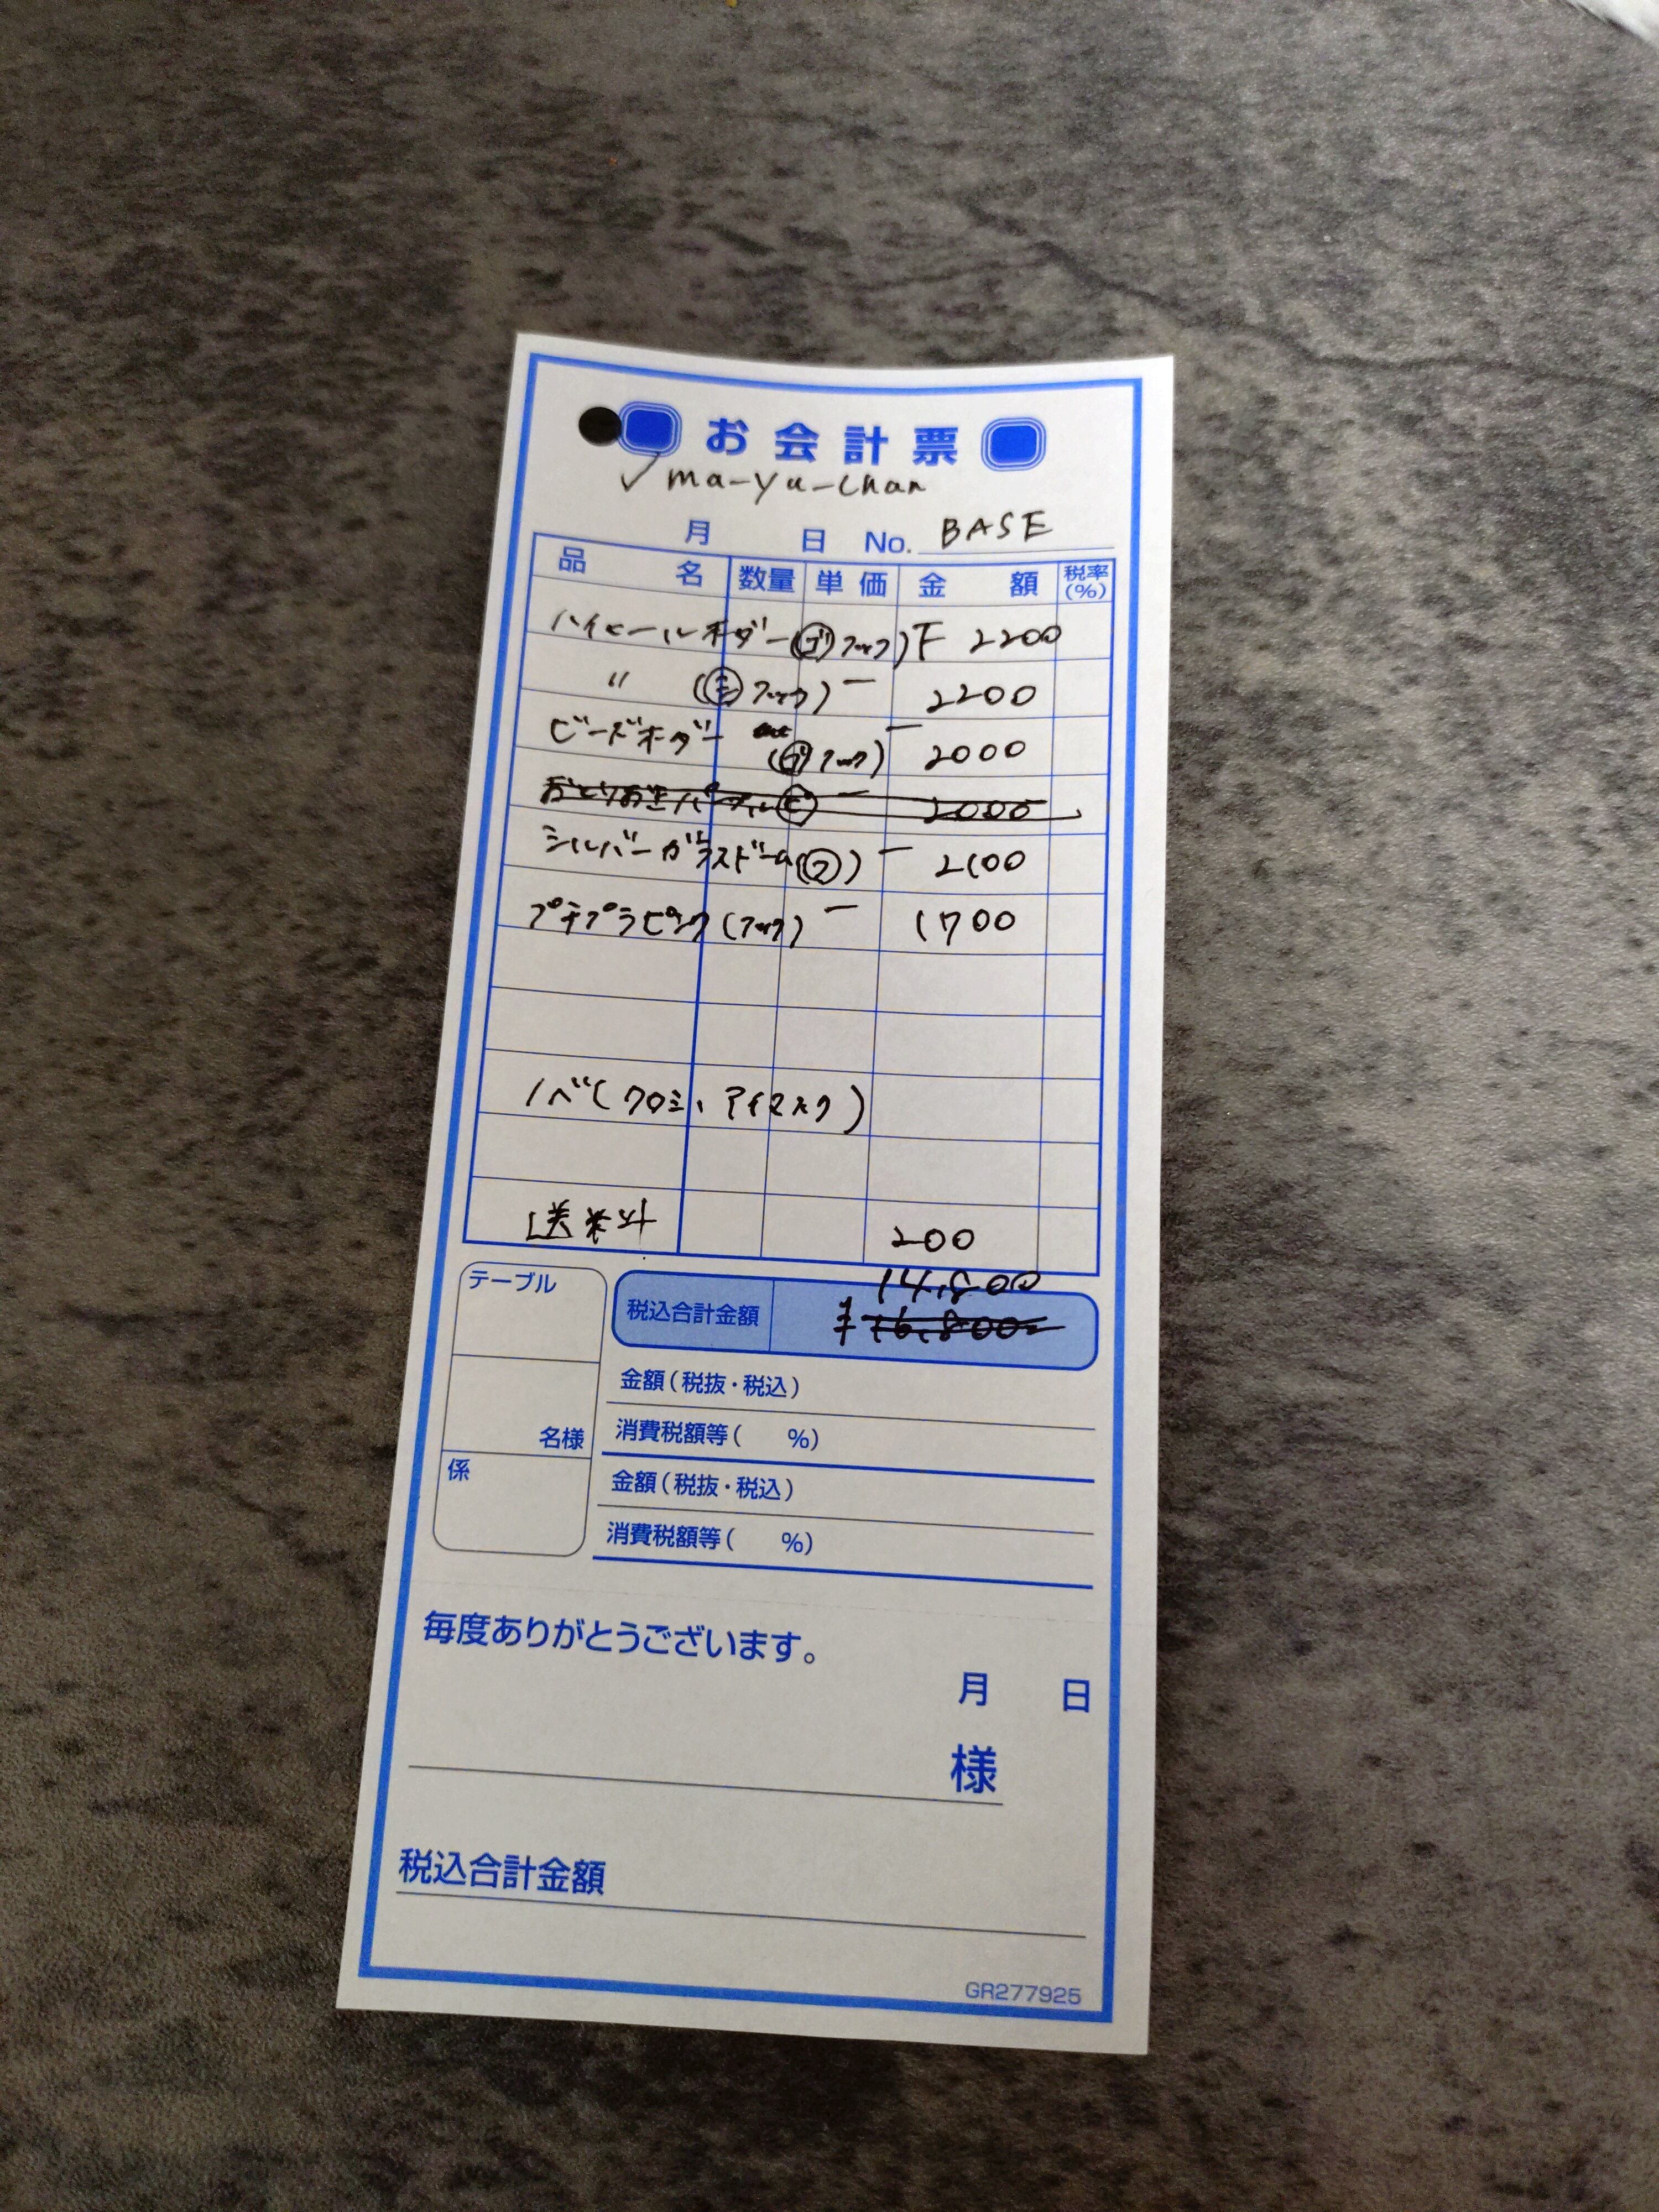 お会計票
✓ ma-yu-chan
月 日 No. BASE
品名 数量 単価 金額 税率(%)
ハイヒールオーダー(ゴフック) 2200
〃 (シフック) 2200
ビーズオーダー (ゴフック) 2000
2000
シルバーガラスドーム(フ) 2100
プチプラピンク(フック) 1700
ノベ(クロミ、アイマスク)
送料 200
14,800
税込合計金額 ¥16,800-
テーブル
金額(税抜・税込)
名様
消費税額等( %)
係
金額(税抜・税込)
消費税額等( %)
毎度ありがとうございます。
月 日
様
税込合計金額
GR277925